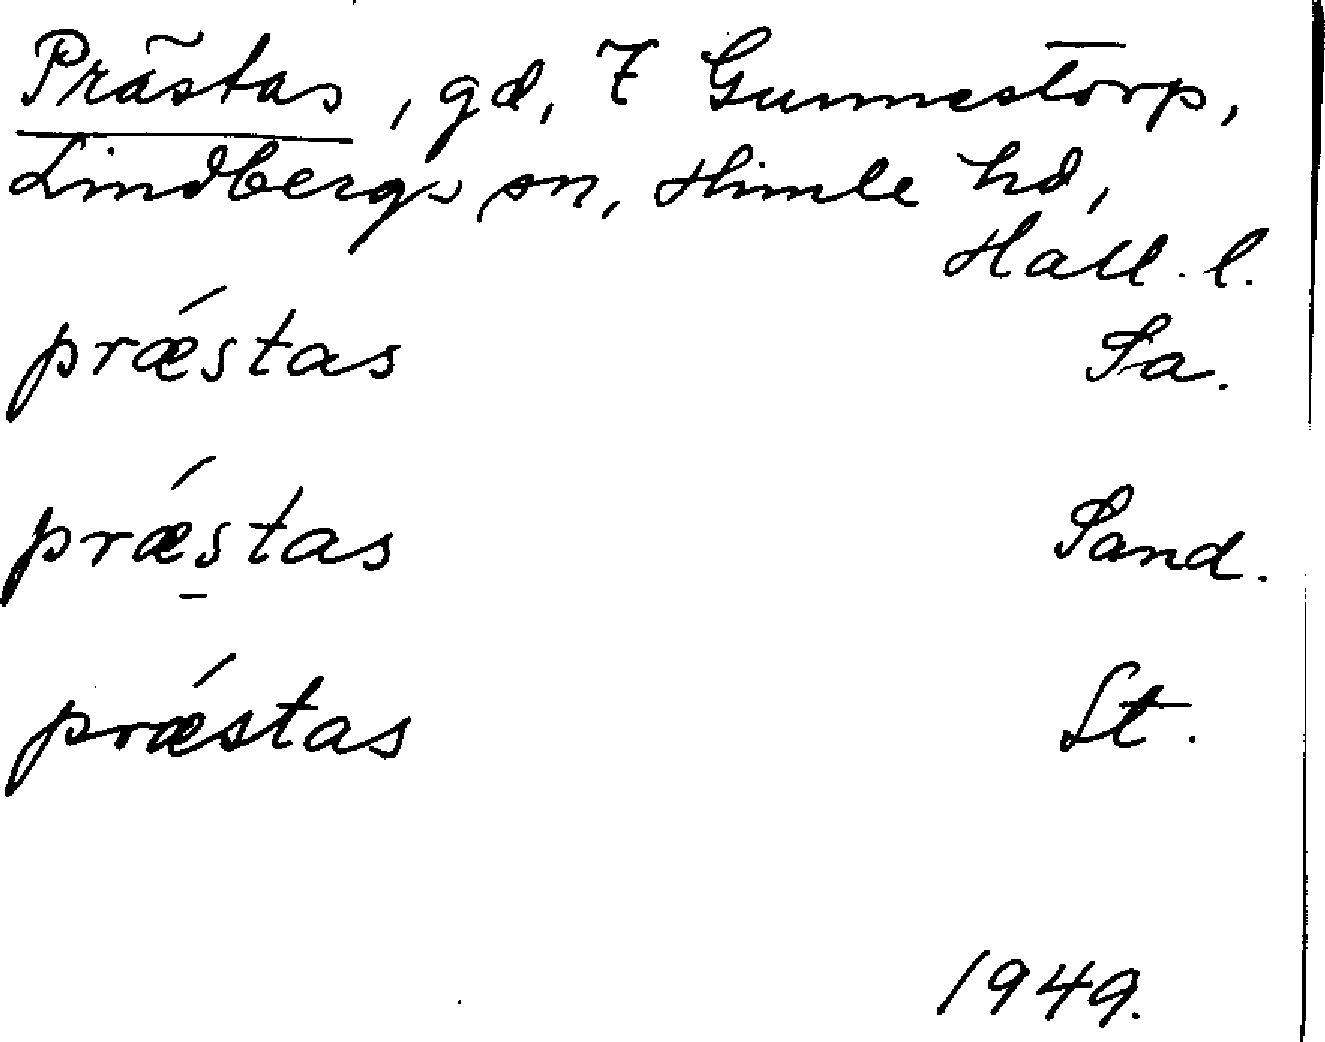 Prästas, gd, 7 Gunnestorp,
Lindbergs sn, Himle hd,
Hall. l.
præ´stas Sa.
præ´s̱tas Sand.
præ´stas St.
1949.